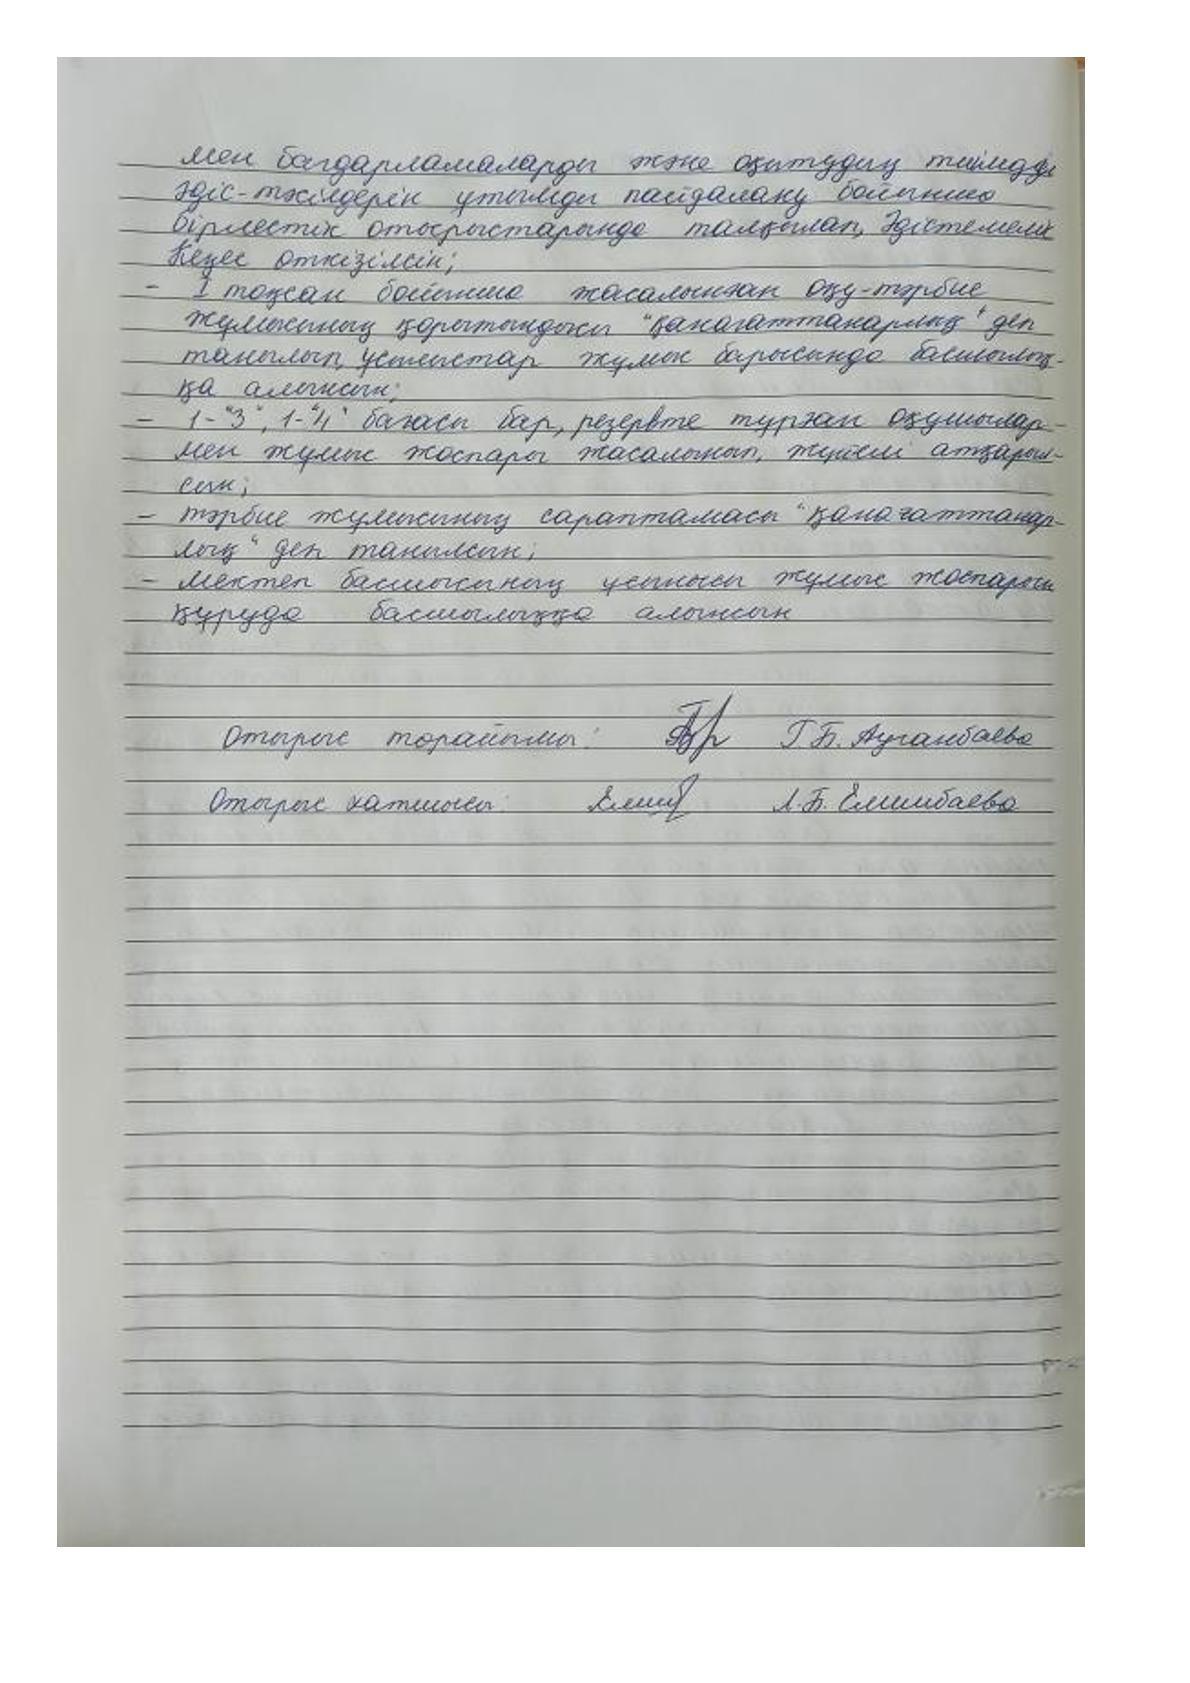 мен бағдарламаларды және оқытудың тиімді
әдіс-тәсілдерін ұтымды пайдалану бойынша
бірлестік отырыстарында талқылап, Әдістемелік
Кеңес өткізілсін;
- I тоқсан бойынша жасалынған оқу-тәрбие
жұмысының қорытындысы "қанағаттанарлық" деп
танылып, ұсыныстар жұмыс барысында басшылық-
қа алынсын;
- 1-"3", 1-"4" бағасы бар, резервте тұрған оқушылар-
мен жұмыс жоспары жасалынып, жүйелі атқарыл-
сын;
- тәрбие жұмысының сараптамасы "қанағаттанар-
лық" деп танылсын;
- мектеп басшысының ұсынысы жұмыс жоспарын
құруда басшылыққа алынсын
Отырыс төрайымы: Г.Б. Ауганбаева
Отырыс хатшысы: Л.Б. Елшибаева